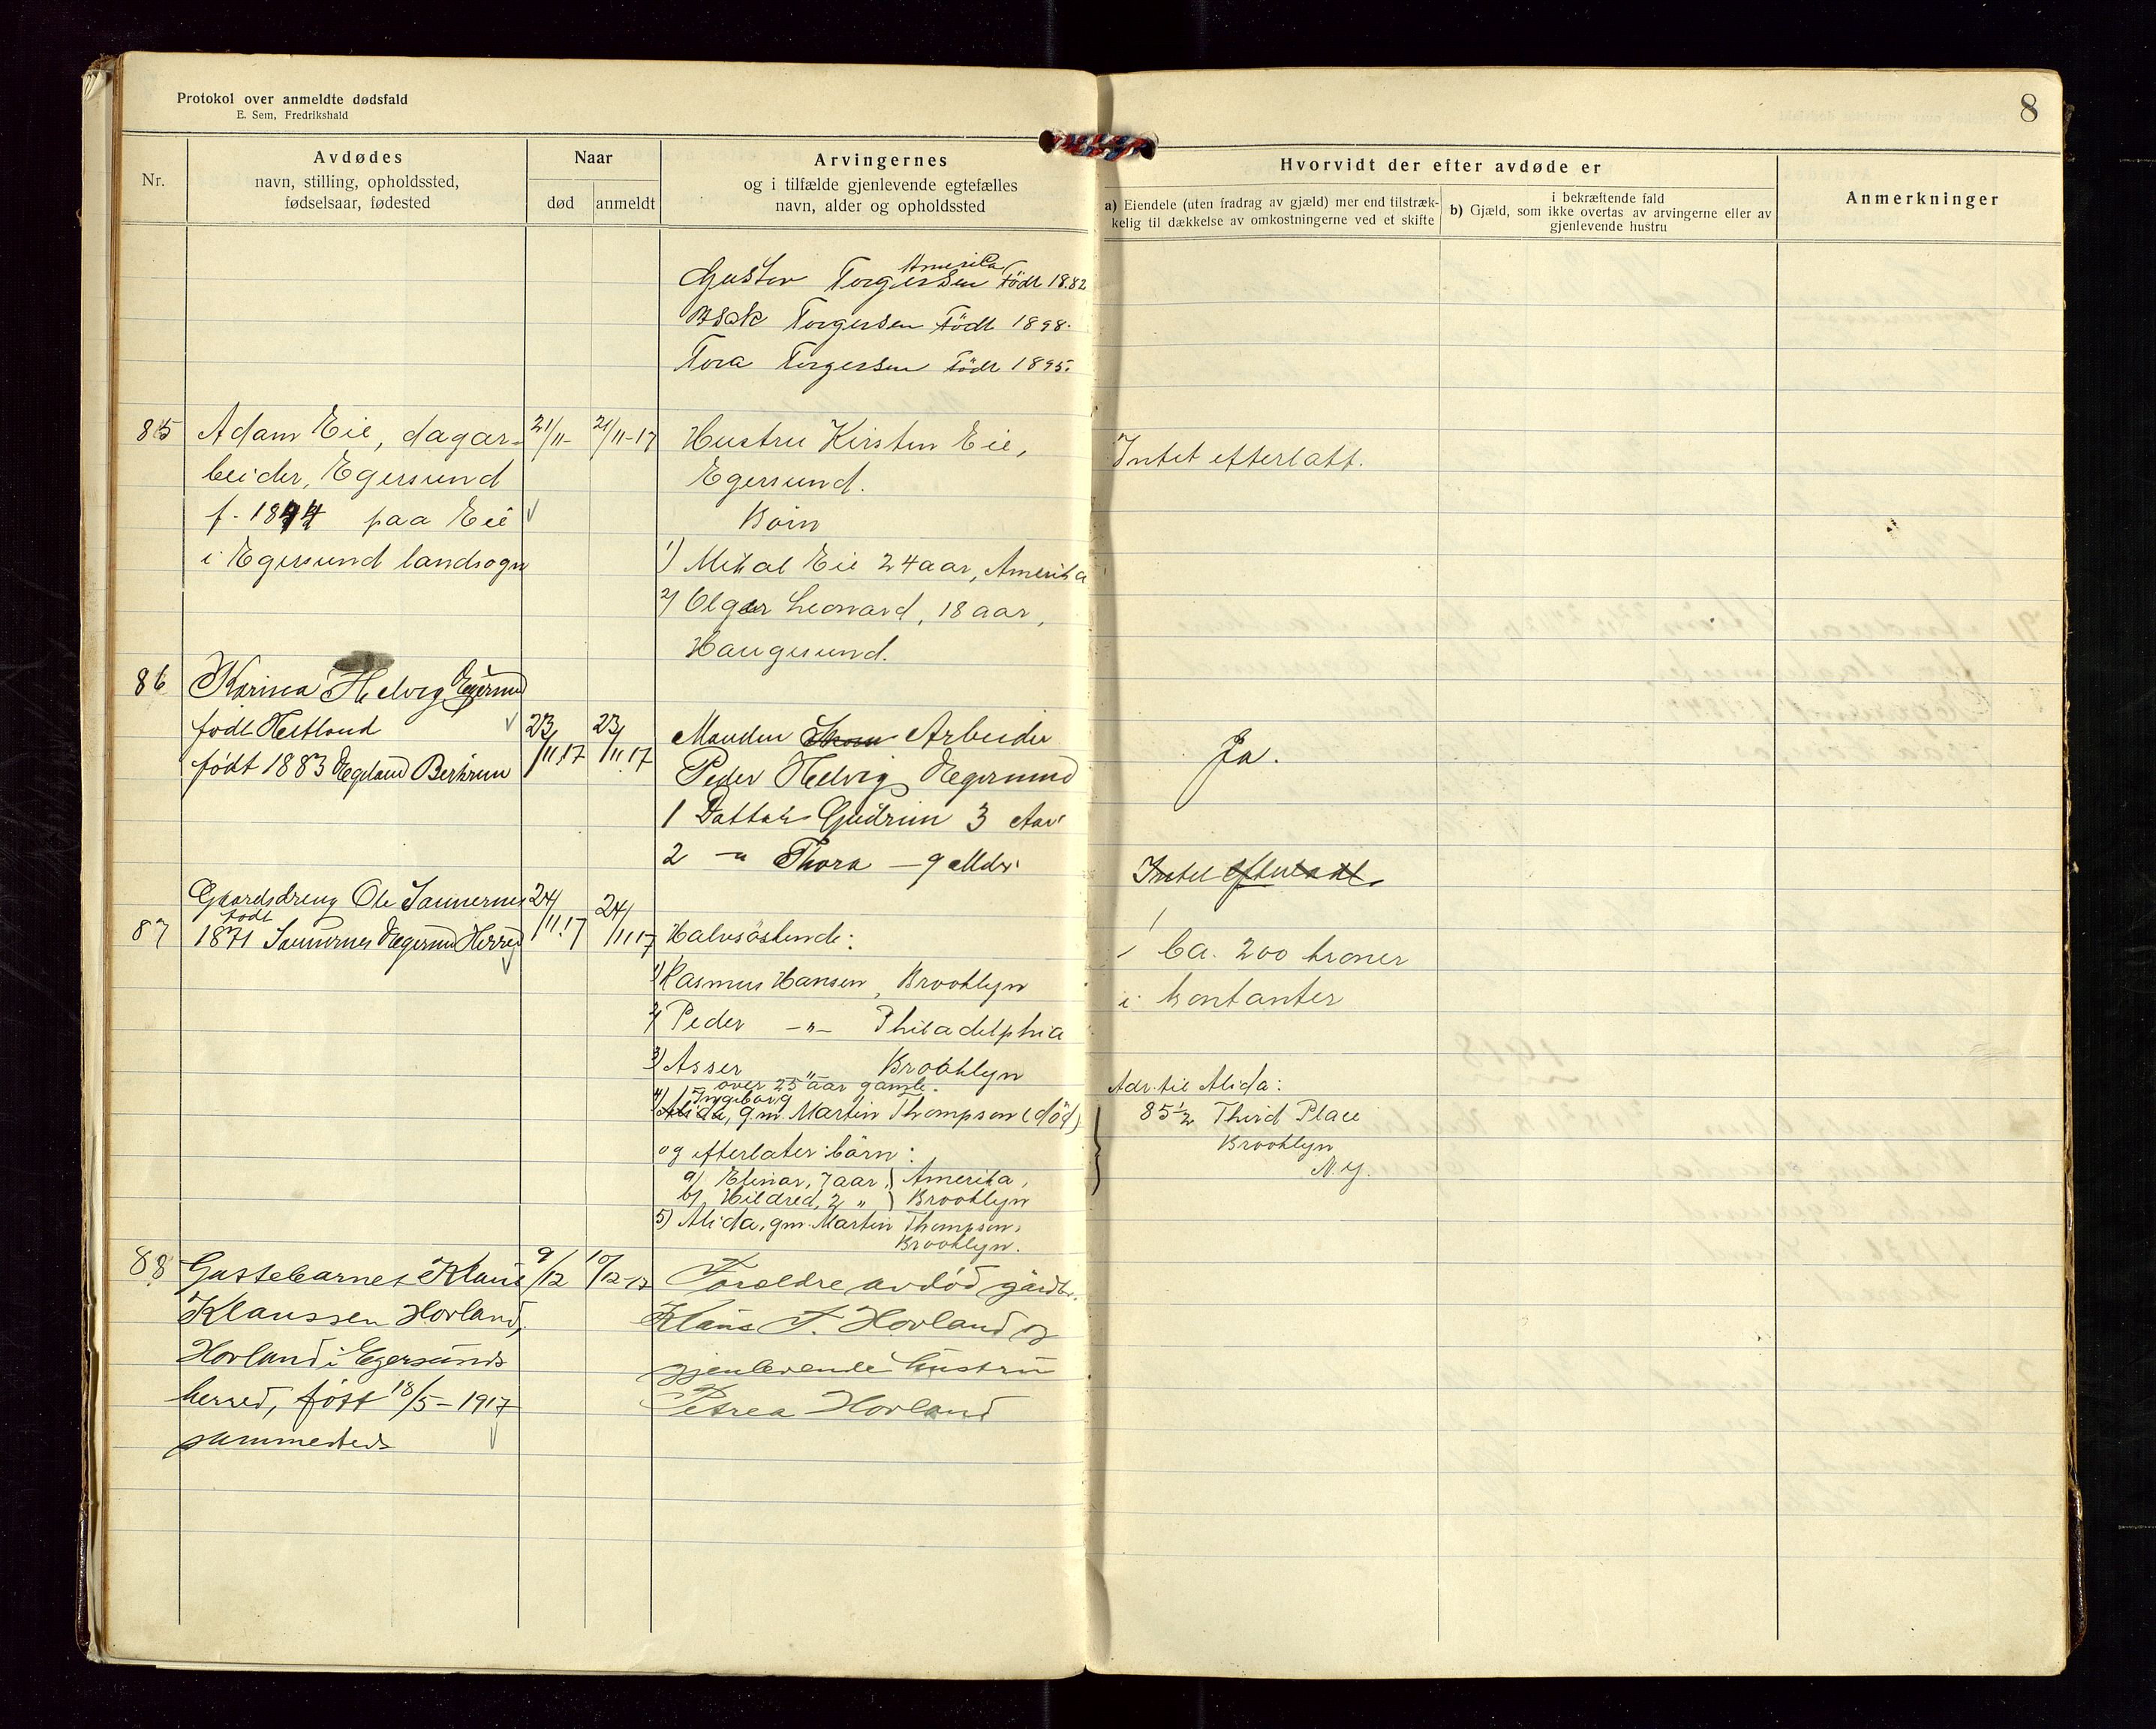 Protokol over anmeldte dødsfald
E. Sem, Fredrikshald
8
Nr.
Avdødes
navn, stilling, opholdssted,
fødselsaar, fødested
Naar
død
anmeldt
Arvingernes
og i tilfælde gjenlevende egtefælles
navn, alder og opholdssted
Hvorvidt der efter avdøde er
a) Eiendele (uten fradrag av gjæld) mer end tilstræk-
kelig til dækkelse av omkostningerne ved et skifte
i bekræftende fald
b) Gjæld, som ikke overtas av arvingerne eller av
gjenlevende hustru
Anmerkninger
Amerika
Gustav Torgersen Födt 1882
Torgersen Födt 1898.
Tora Torgersen Födt 1895.
85
Adam Eie, dagar-
beider, Egersund
f. 1844 paa Eie
i Egersund landsogn
21/11-
21/11-17
Hustru Kirsten Eie,
Egersund.
Börn
1) Mikal Eie 24 aar, Amerika
2) Olger Leonard, 18 aar,
Haugesund.
Intet efterlatt.
86
Karina Helvig Egersund
födt Hetland
født 1883 Hegeland
23/11.17
23/11.17
Manden Arbeider
Peder Helvig Egersund
1 Datter Gudrun 3 Aar
2 -"- Thora - 9 Mdr.
Ja.
87
Gaardsdreng Ole
födt
1871 Egersund Herred
24/11.17
24/11.17
Halvsöskende:
1) Rasmus Hansen, Brooklyn
2) Peder -"- Philadelphia
3) Asser " Brooklyn
over 25 aar gamle.
Ingeborg
4) Alida, gm. Martin Thompson (död)
og efterlater börn:
a) Elinar, 7 aar } Amerika,
b) Hildred, 2 " } Brooklyn
5) Alida, gm. Martin Thompson,
Brooklyn.
Intet efterlatt.
Ca. 200 kroner
i kontanter
Adr. til Alida:
85 1/2 Third Place
Brooklyn
N.Y.
88
Klaus
Klaussen Hovland,
Hovland i Egersunds
herred, født 18/5-1917
sammesteds
9/12
10/12-17
Foreldre avdöd gårdbr.
Klaus T. Hovland og
gjenlevende hustru
Petrea Hovland